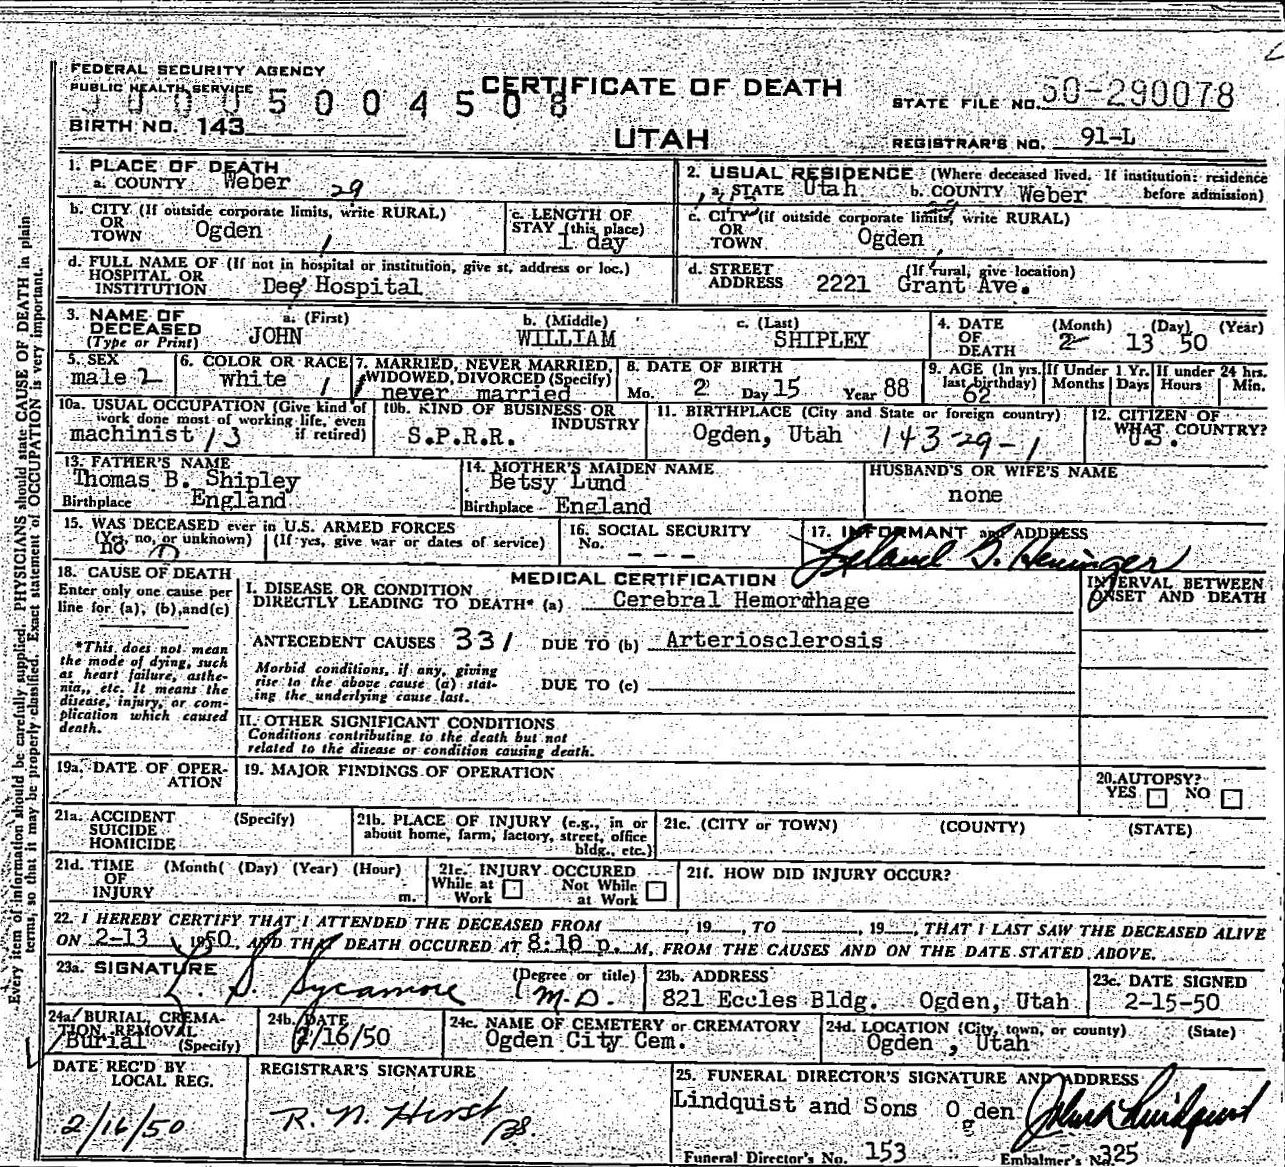 FEDERAL SECURITY AGENCY
PUBLIC HEALTH SERVICE
CERTIFICATE OF DEATH
5004508
STATE FILE NO. 50-290078
BIRTH NO. 143
UTAH
REGISTRAR'S NO. 91-L
1. PLACE OF DEATH
a. COUNTY Weber 29
2. USUAL RESIDENCE (Where deceased lived. If institution: residence before admission)
a. STATE Utah b. COUNTY Weber
b. CITY (If outside corporate limits, write RURAL)
OR
TOWN Ogden
c. LENGTH OF
STAY (this place)
1 day
c. CITY (if outside corporate limits, write RURAL)
OR
TOWN Ogden
d. FULL NAME OF (If not in hospital or institution, give st. address or loc.)
HOSPITAL OR
INSTITUTION Dee Hospital
d. STREET (If rural, give location)
ADDRESS 2221 Grant Ave.
3. NAME OF
DECEASED
(Type or Print)
a. (First)
JOHN
b. (Middle)
WILLIAM
c. (Last)
SHIPLEY
4. DATE
OF
DEATH
(Month) (Day) (Year)
2 13 50
5. SEX
male 2
6. COLOR OR RACE
white 1
7. MARRIED, NEVER MARRIED,
WIDOWED, DIVORCED (Specify)
never married
8. DATE OF BIRTH
Mo. 2 Day 15 Year 88
9. AGE (In yrs. last birthday)
62
If Under 1 Yr.
Months Days
If under 24 hrs.
Hours Min.
10a. USUAL OCCUPATION (Give kind of
work done most of working life, even
if retired)
machinist 13
10b. KIND OF BUSINESS OR
INDUSTRY
S.P.R.R.
11. BIRTHPLACE (City and State or foreign country)
Ogden, Utah 143-29-1
12. CITIZEN OF
WHAT COUNTRY?
US.
13. FATHER'S NAME
Thomas B. Shipley
Birthplace England
14. MOTHER'S MAIDEN NAME
Betsy Lund
Birthplace England
HUSBAND'S OR WIFE'S NAME
none
15. WAS DECEASED ever in U.S. ARMED FORCES
(Yes, no, or unknown) (If yes, give war or dates of service)
no 0
16. SOCIAL SECURITY
No. - - -
17. INFORMANT and ADDRESS
Leland G. Heninger
18. CAUSE OF DEATH
Enter only one cause per
line for (a), (b), and (c)
*This does not mean
the mode of dying, such
as heart failure, asthe-
nia,, etc. It means the
disease, injury, or com-
plication which caused
death.
MEDICAL CERTIFICATION
I. DISEASE OR CONDITION
DIRECTLY LEADING TO DEATH* (a) Cerebral Hemorrhage
INTERVAL BETWEEN
ONSET AND DEATH
ANTECEDENT CAUSES 331 DUE TO (b) Arteriosclerosis
Morbid conditions, if any, giving
rise to the above cause (a) stat-
ing the underlying cause last.
DUE TO (c)
II. OTHER SIGNIFICANT CONDITIONS
Conditions contributing to the death but not
related to the disease or condition causing death.
19a. DATE OF OPER-
ATION
19. MAJOR FINDINGS OF OPERATION
20. AUTOPSY?
YES NO
21a. ACCIDENT (Specify)
SUICIDE
HOMICIDE
21b. PLACE OF INJURY (e.g., in or
about home, farm, factory, street, office
bldg., etc.)
21c. (CITY or TOWN) (COUNTY) (STATE)
21d. TIME (Month( (Day) (Year) (Hour)
OF
INJURY m.
21e. INJURY OCCURED
While at Work Not While at Work
21f. HOW DID INJURY OCCUR?
22. I HEREBY CERTIFY THAT I ATTENDED THE DECEASED FROM , 19 , TO , 19 , THAT I LAST SAW THE DECEASED ALIVE
ON 2-13, 1950, AND THAT DEATH OCCURED AT 8:10 p. M, FROM THE CAUSES AND ON THE DATE STATED ABOVE.
23a. SIGNATURE (Degree or title)
L. S. Sycamore M.D.
23b. ADDRESS
821 Eccles Bldg. Ogden, Utah
23c. DATE SIGNED
2-15-50
24a. BURIAL, CREMA-
TION, REMOVAL
Burial (Specify)
24b. DATE
2/16/50
24c. NAME OF CEMETERY or CREMATORY
Ogden City Cem.
24d. LOCATION (City, town, or county) (State)
Ogden , Utah
DATE REC'D BY
LOCAL REG.
2/16/50
REGISTRAR'S SIGNATURE
R. N. Hirst
25. FUNERAL DIRECTOR'S SIGNATURE AND ADDRESS
Lindquist and Sons Ogden John Lindquist
Funeral Director's No. 153 Embalmer's No. 325
Every item of information should be carefully supplied. PHYSICIANS should state CAUSE OF DEATH in plain
terms, so that it may be properly classified. Exact statement of OCCUPATION is very important.